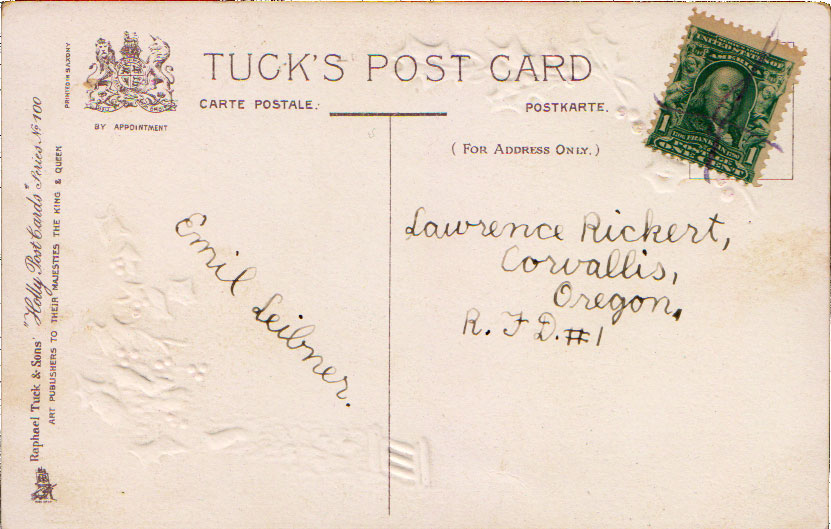 TUCK'S POST CARD
CARTE POSTALE.
POSTKARTE.
(FOR ADDRESS ONLY.)
BY APPOINTMENT
PRINTED IN SAXONY
Raphael Tuck & Sons' "Holly Post Cards" Series No 100
ART PUBLISHERS TO THEIR MAJESTIES THE KING & QUEEN
UNITED STATES OF AMERICA
1 FRANKLIN 1
ONE CENT
Emil Leibner.
Lawrence Rickert,
Corvallis,
Oregon,
R. F D. #1